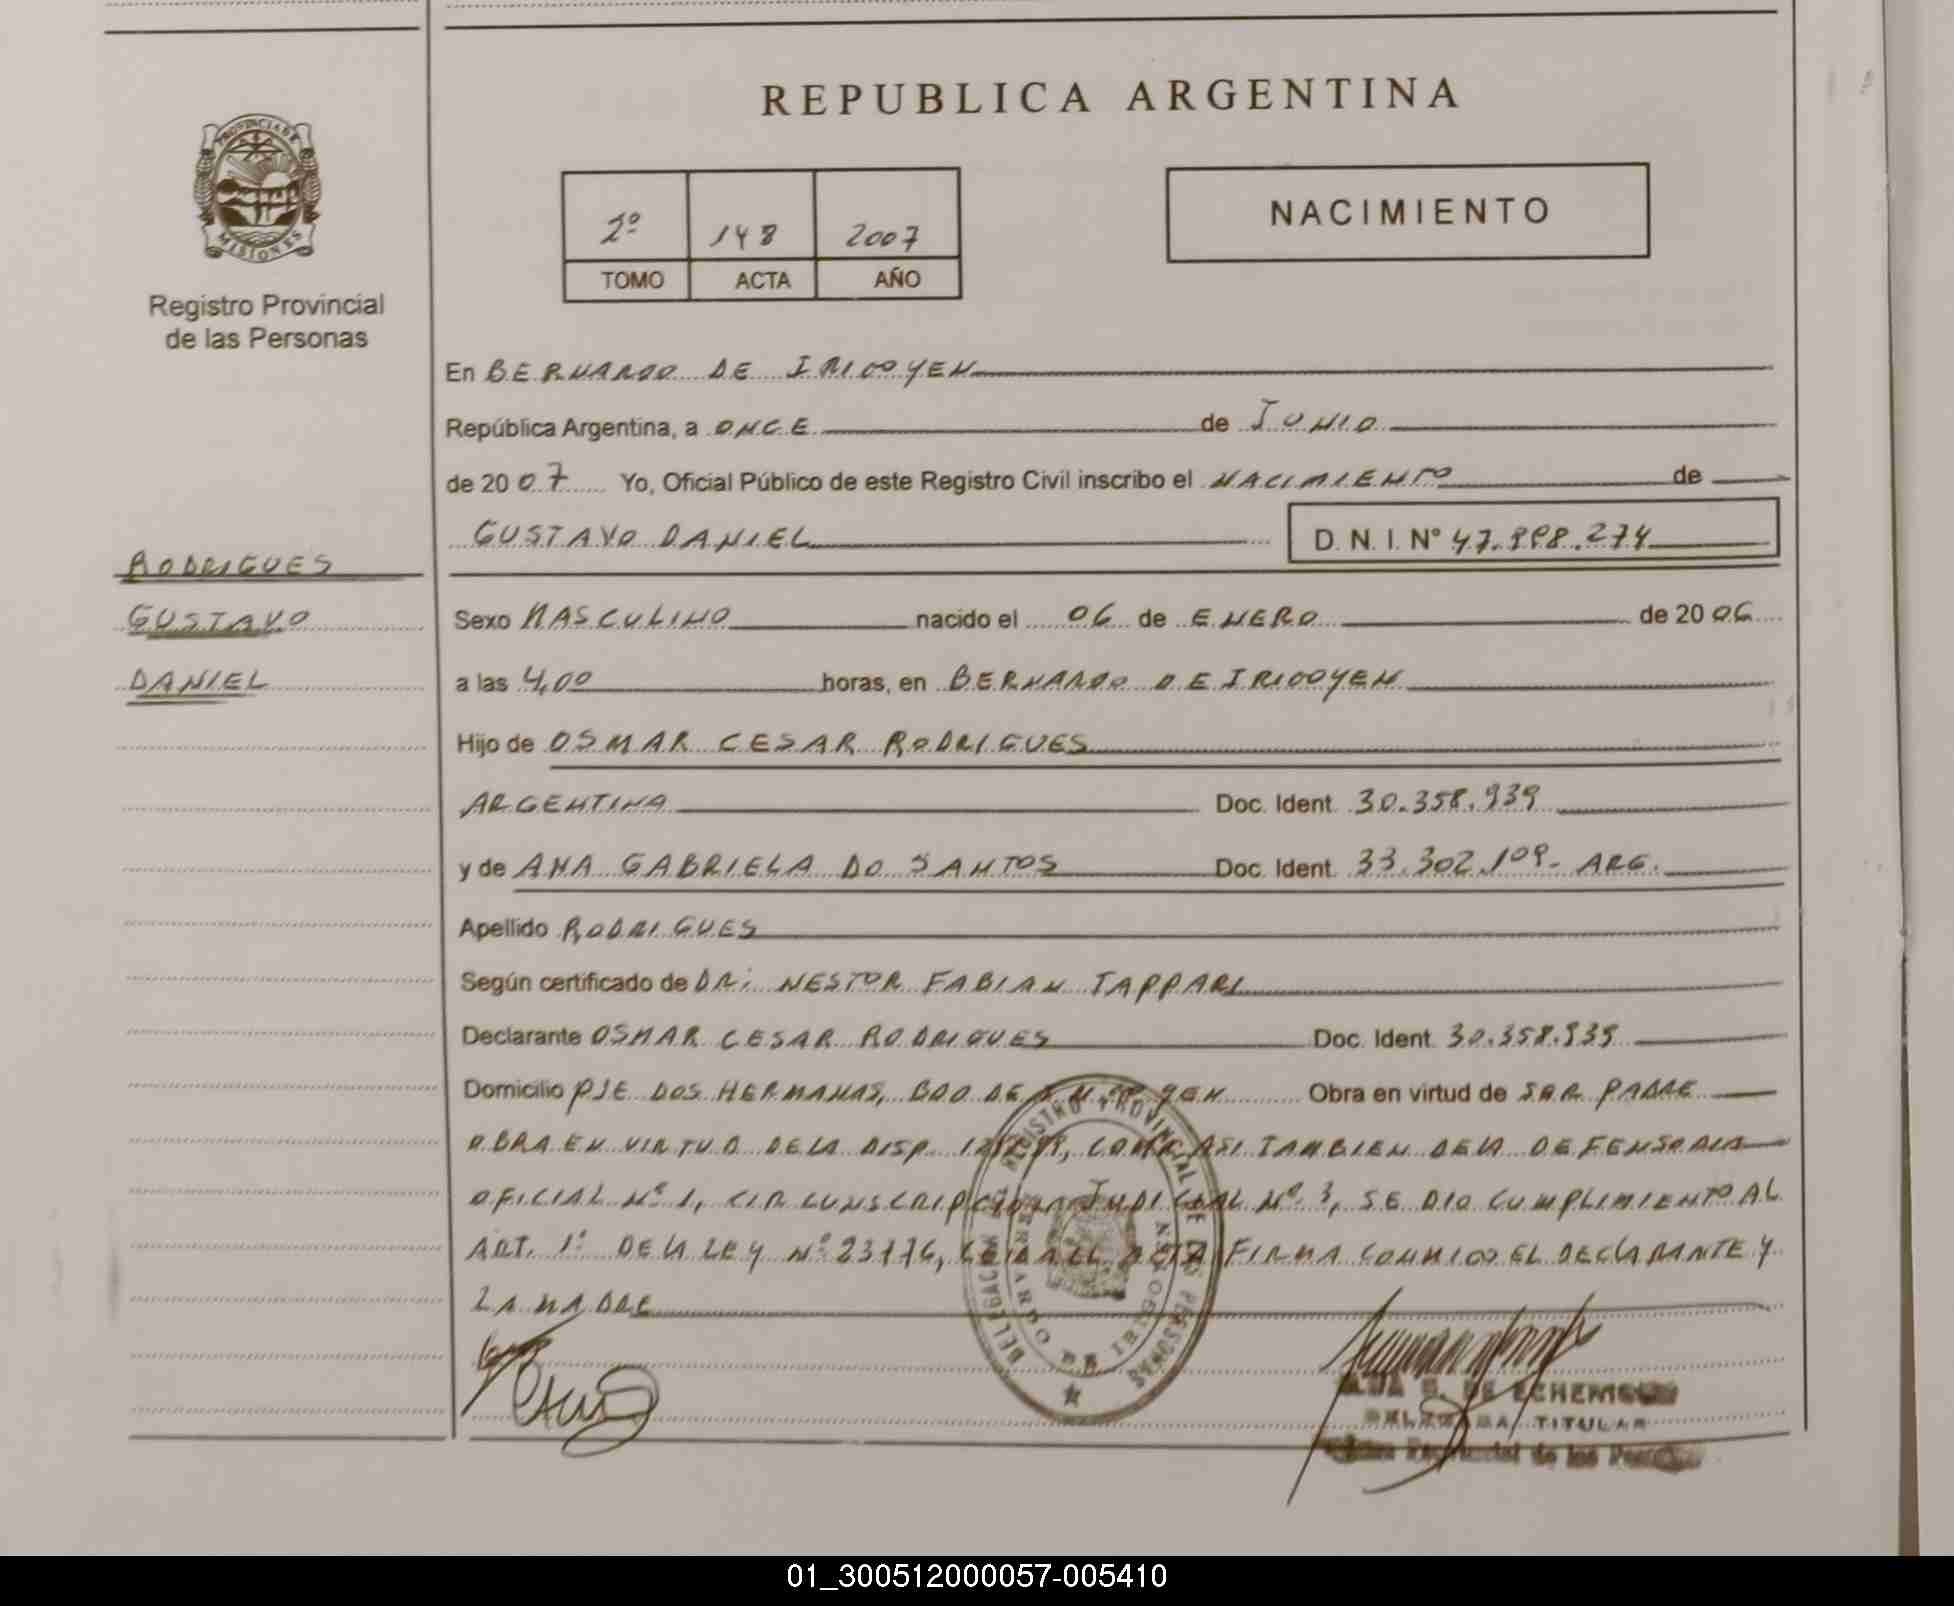 REPUBLICA ARGENTINA
PROVINCIA DE
MISIONES
Registro Provincial
de las Personas
2º 148 2007
TOMO ACTA AÑO
NACIMIENTO
En BERNARDO DE IRIGOYEN
República Argentina, a ONCE de JUNIO
de 2007 Yo, Oficial Público de este Registro Civil inscribo el NACIMIENTO de
GUSTAVO DANIEL D. N. I. Nº
RODRIGUES
GUSTAVO
DANIEL
Sexo MASCULINO nacido el 06 de ENERO de 2006
a las 4,00 horas, en BERNARDO DE IRIGOYEN
Hijo de OSMAR CESAR RODRIGUES
ARGENTINA Doc. Ident. 30.358.939
y de ANA GABRIELA DO SANTOS Doc. Ident. 33.302.109- ARG.
Apellido RODRIGUES
Según certificado de DR: NESTOR FABIAN TAPPARI
Declarante OSMAR CESAR RODRIGUES Doc. Ident. 30.358.939
Domicilio PJE DOS HERMANAS, BDO DE Obra en virtud de SER PADRE
OBRA EN VIRTUD DE LA DISP. COMO ASI TAMBIEN DE LA DEFENSORIA
OFICIAL Nº 1, CIRCUNSCRIPCION JUDICIAL Nº 3, SE DIO CUMPLIMIENTO AL
ART. 1º DE LA LEY Nº 23776, LEIDA EL ACTA FIRMA CONMIGO EL DECLARANTE Y
LA MADRE
DELEGACION REGISTRO PROVINCIAL DE LAS PERSONAS
BERNARDO DE IRIGOYEN
DE
TITULAR
Provincial de las
01_300512000057-005410